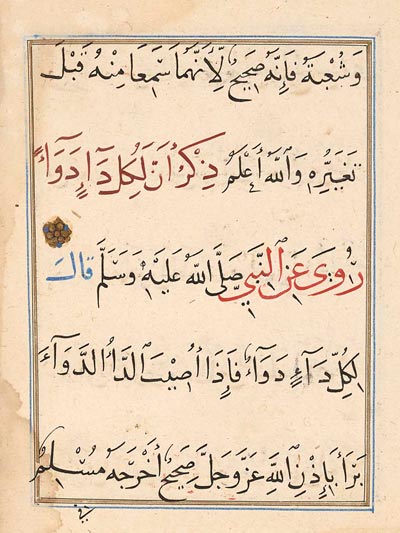 وَشُعْبَةُ فَإِنَّهُ صَحِيحٌ لِأَنَّهُمَا سَمِعَا مِنْهُ قَبْلَ
تَغَيُّرِهِ وَاللهُ أَعْلَمُ ذِكْرُ أَنَّ لِكُلِّ دَاءٍ دَوَاءً
رُوِيَ عَنِ النَّبِيِّ صَلَّى اللهُ عَلَيْهِ وَسَلَّمَ قَالَ
لِكُلِّ دَاءٍ دَوَاءٌ فَإِذَا أُصِيبَ الدَّاءُ الدَّوَاءَ
بَرَأَ بِإِذْنِ اللهِ عَزَّ وَجَلَّ صَحِيحٌ أَخْرَجَهُ مُسْلِمٌ